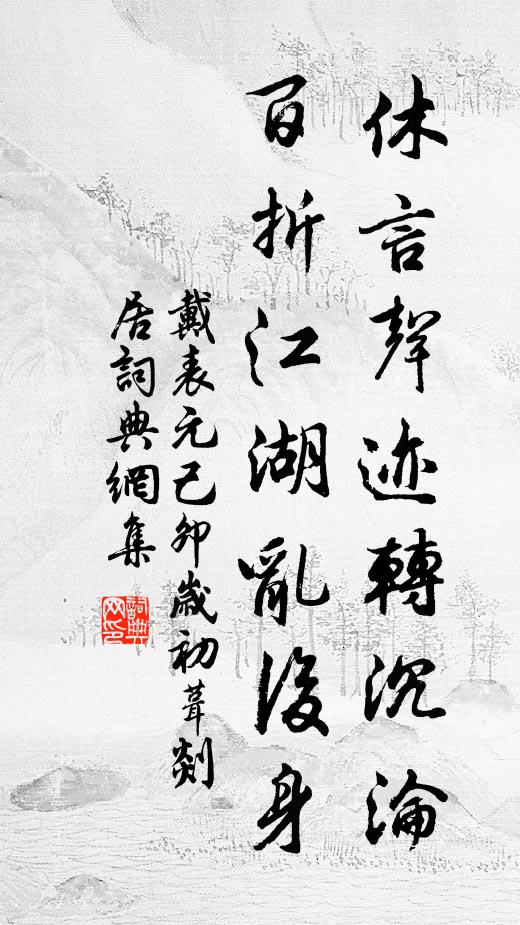 休言聲迹轉沉淪
百折江湖亂後身
戴表元己卯歲初葺剡
居詞典網集
詞典
网印